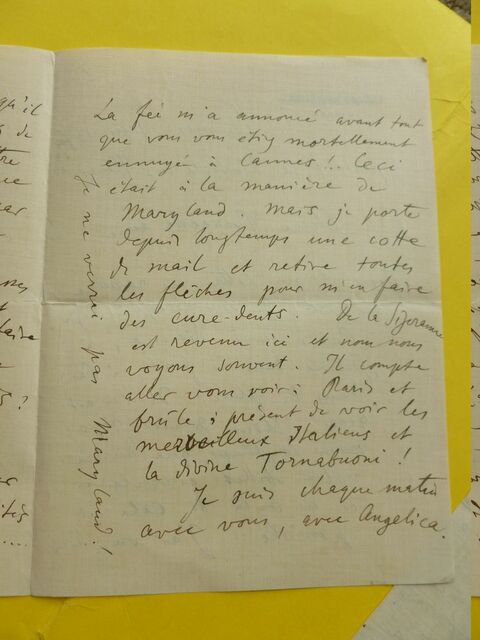 La fée m'a annoncé avant tout
que vous vous étiez mortellement
ennuyé à Cannes !.. Ceci
était à la manière de
Maryland. Mais je porte
depuis longtemps une cotte
de mail et retire toutes
les flèches pour m'en faire
des cure-dents. De la Sizeranne
est revenu ici et nous nous
voyons souvent. Il compte
aller vous voir à Paris et
brûle à présent de voir les
merveilleux Italiens et
la divine Tornabuoni !
Je suis chaque matin
avec vous, avec Angelica.
Je ne verrai pas Maryland !
qu'il
de
que
faire